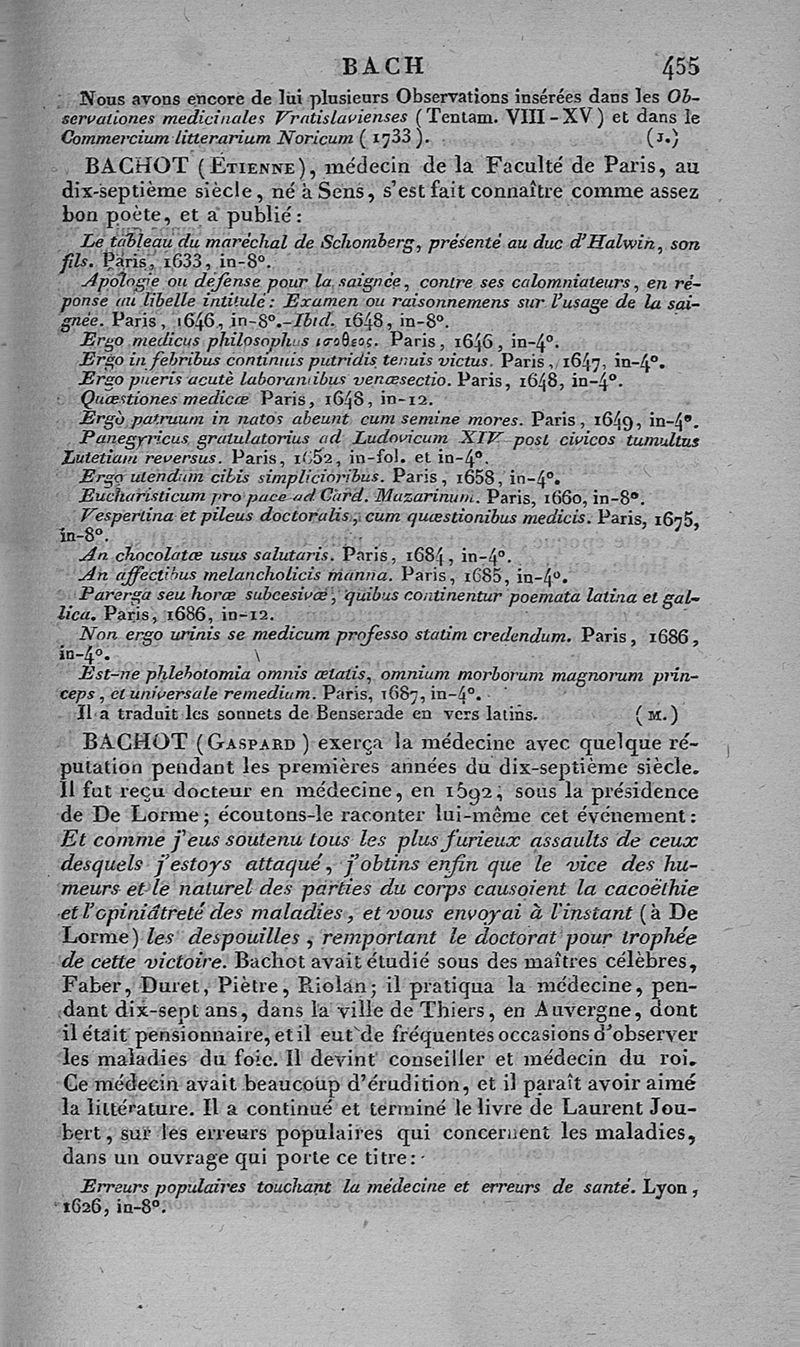 BACH 455
Nous avons encore de lui plusieurs Observations insérées dans les Ob-
servationes medicinales Vratislavienses (Tentam. VIII-XV) et dans le
Commercium litterarium Noricum (1733). (J.)
BACHOT (ÉTIENNE), médecin de la Faculté de Paris, au
dix-septième siècle, né à Sens, s'est fait connaître comme assez
bon poète, et a publié:
Le tableau du maréchal de Schomberg, présenté au duc d'Halwin, son
fils. Paris, 1633, in-8°.
Apologie ou défense pour la saignée, contre ses calomniateurs, en ré-
ponse au libelle intitulé: Examen ou raisonnemens sur l'usage de la sai-
gnée. Paris, 1646, in-8°.-Ibid. 1648, in-8°.
Ergo medicus philosophus ισοθεος. Paris, 1646, in-4°.
Ergo in febribus continuis putridis tenuis victus. Paris, 1647, in-4°.
Ergo pueris acutè laborantibus venæsectio. Paris, 1648, in-4°.
Quæstiones medicæ Paris, 1648, in-12.
Ergò patruum in natos abeunt cum semine mores. Paris, 1649, in-4°.
Panegyricus gratulatorius ad Ludovicum XIV post civicos tumultus
Lutetiam reversus. Paris, 1652, in-fol. et in-4°.
Ergo utendum cibis simplicioribus. Paris, 1658, in-4°.
Eucharisticum pro pace ad Card. Mazarinum. Paris, 1660, in-8°.
Vespertina et pileus doctoralis, cum quæstionibus medicis. Paris, 1675,
in-8°.
An chocolatæ usus salutaris. Paris, 1684, in-4°.
An affectibus melancholicis manna. Paris, 1685, in-4°.
Parerga seu horæ subcesivæ, quibus continentur poemata latina et gal-
lica. Paris, 1686, in-12.
Non ergo urinis se medicum professo statim credendum. Paris, 1686,
in-4°.
Est-ne phlebotomia omnis ætatis, omnium morborum magnorum prin-
ceps, et universale remedium. Paris, 1687, in-4°.
Il a traduit les sonnets de Benserade en vers latins. (M.)
BACHOT (GASPARD) exerça la médecine avec quelque ré-
putation pendant les premières années du dix-septième siècle.
Il fut reçu docteur en médecine, en 1592, sous la présidence
de De Lorme; écoutons-le raconter lui-même cet événement:
Et comme j'eus soutenu tous les plus furieux assaults de ceux
desquels j'estoys attaqué, j'obtins enfin que le vice des hu-
meurs et le naturel des parties du corps causoient la cacoëthie
et l'opiniâtreté des maladies, et vous envoyai à l'instant (à De
Lorme) les despouilles, remportant le doctorat pour trophée
de cette victoire. Bachot avait étudié sous des maîtres célèbres,
Faber, Duret, Piètre, Riolan; il pratiqua la médecine, pen-
dant dix-sept ans, dans la ville de Thiers, en Auvergne, dont
il était pensionnaire, et il eut de fréquentes occasions d'observer
les maladies du foie. Il devint conseiller et médecin du roi.
Ce médecin avait beaucoup d'érudition, et il paraît avoir aimé
la littérature. Il a continué et terminé le livre de Laurent Jou-
bert, sur les erreurs populaires qui concernent les maladies,
dans un ouvrage qui porte ce titre:
Erreurs populaires touchant la médecine et erreurs de santé. Lyon,
1626, in-8°.